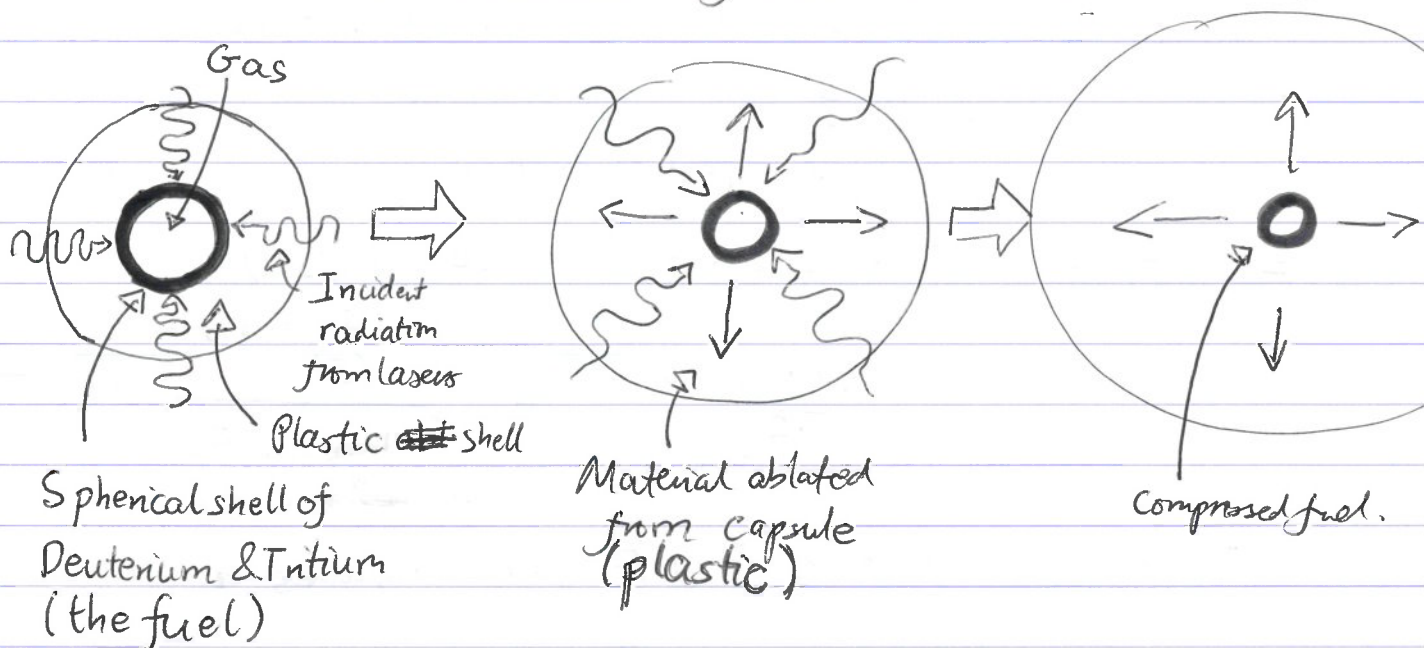 Gas
Incident
radiation
from lasers
Plastic shell
Spherical shell of
Deuterium & Tritium
(the fuel)
Material ablated
from capsule
(plastic)
Compressed fuel.